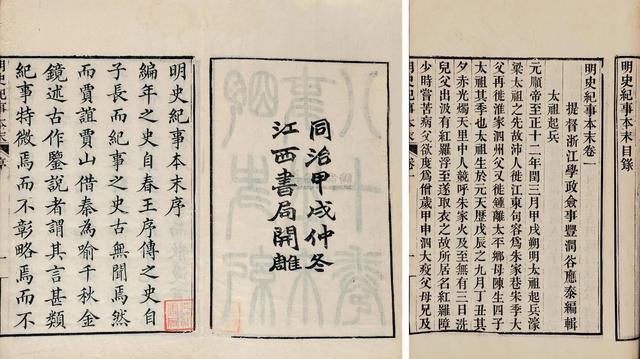 同治甲戌仲冬
江西書局開雕
明史紀事本末序
編年之史自春王序傳之史自
子長而紀事之史古無聞焉然
而賈誼賈山借秦為喻千秋金
鏡述古作鑒說者謂其言甚類
紀事特微焉而不彰略焉而不
明史紀事本末 序 一
明史紀事本末目錄
明史紀事本末卷一
提督浙江學政僉事豐潤谷應泰編輯
太祖起兵
元順帝至正十二年閏三月甲戌朔明太祖起兵濠
梁太祖之先故沛人徙江東句容爲朱家巷宋季大
父再徙淮家泗州父又徙鍾離太平鄉母陳生四子
太祖其季也太祖生於元天歷戊辰之九月丁丑其
夕赤光燭天里中人競呼朱家火及至無有三日洗
兒父出汲有紅羅浮至遂取衣之故所居名紅羅障
少時嘗苦病父欲度爲僧歲甲申泗大疫父母兄及
明史紀事本末 卷一 一